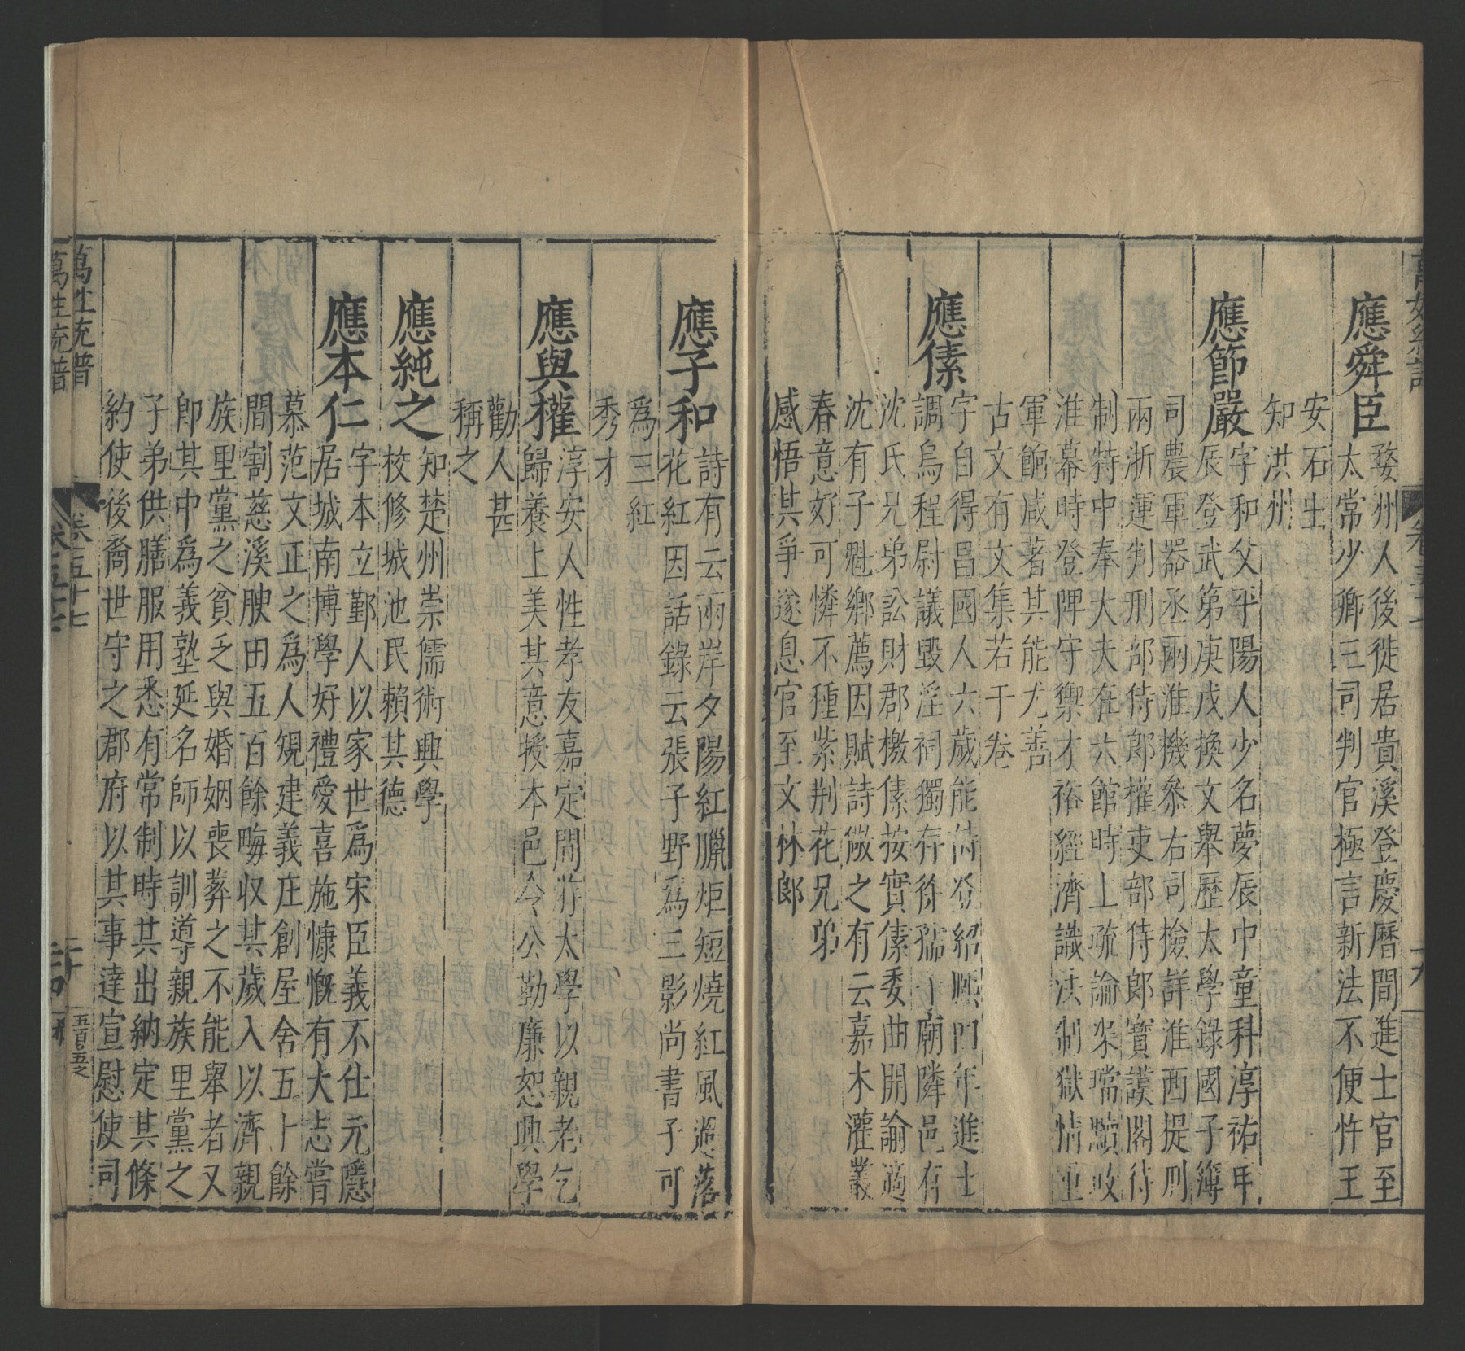 應舜臣
婺州人後徙居貴溪登慶曆間進士官至
太常少卿三司判官極言新法不便忤王
安石生
知洪州
應節嚴
字和父平陽人少名夢辰中童科淳祐甲
辰登武第庚戌換文舉歷太學錄國子簿
司農軍器丞兩淮機叅右司檢詳淮西提刑
兩浙運判刑部侍郎權吏部侍郎寳謨閣待
制特中奉大夫在六館時上疏論宋璫黷政
淮幕時登陴守禦才裕經濟讞決制獄情重
軍餉咸著其能尤善
古文有文集若干卷
應傃
字自得昌國人六歲能詩登紹熙四年進士
調烏程尉議毀淫祠獨存徐孺子廟隣邑有
沈氏兄弟訟財郡檄傃按實傃委曲開諭適
沈有子魁鄉薦因賦詩儆之有云嘉木灌叢
春意好可憐不種紫荆花兄弟
感悟其爭遂息官至文林郎
應子和
詩有云兩岸夕陽紅臘炬短燒紅風過落
花紅因話錄云張子野爲三影尚書子可
爲三紅
秀才
應與權
淳安人性孝友嘉定間游太學以親老乞
歸養上美其意授本邑令公勤廉恕興學
勸人甚
稱之
應純之
知楚州崇儒術興學
校修城池民賴其德
應本仁
字本立鄞人以家世爲宋臣義不仕元應
居城南博學好禮愛喜施慷慨有大志嘗
慕范文正之爲人規建義庄創屋舍五十餘
間割慈溪腴田五百餘畮收其歲入以濟親
族里黨之貧乏與婚姻喪葬之不能舉者又
卽其中爲義塾延名師以訓導親族里黨之
子弟供膳服用悉有常制時其出納定其條
約使後裔世守之郡府以其事達宣慰使司
萬姓統譜
卷五十七
二十
五百五之